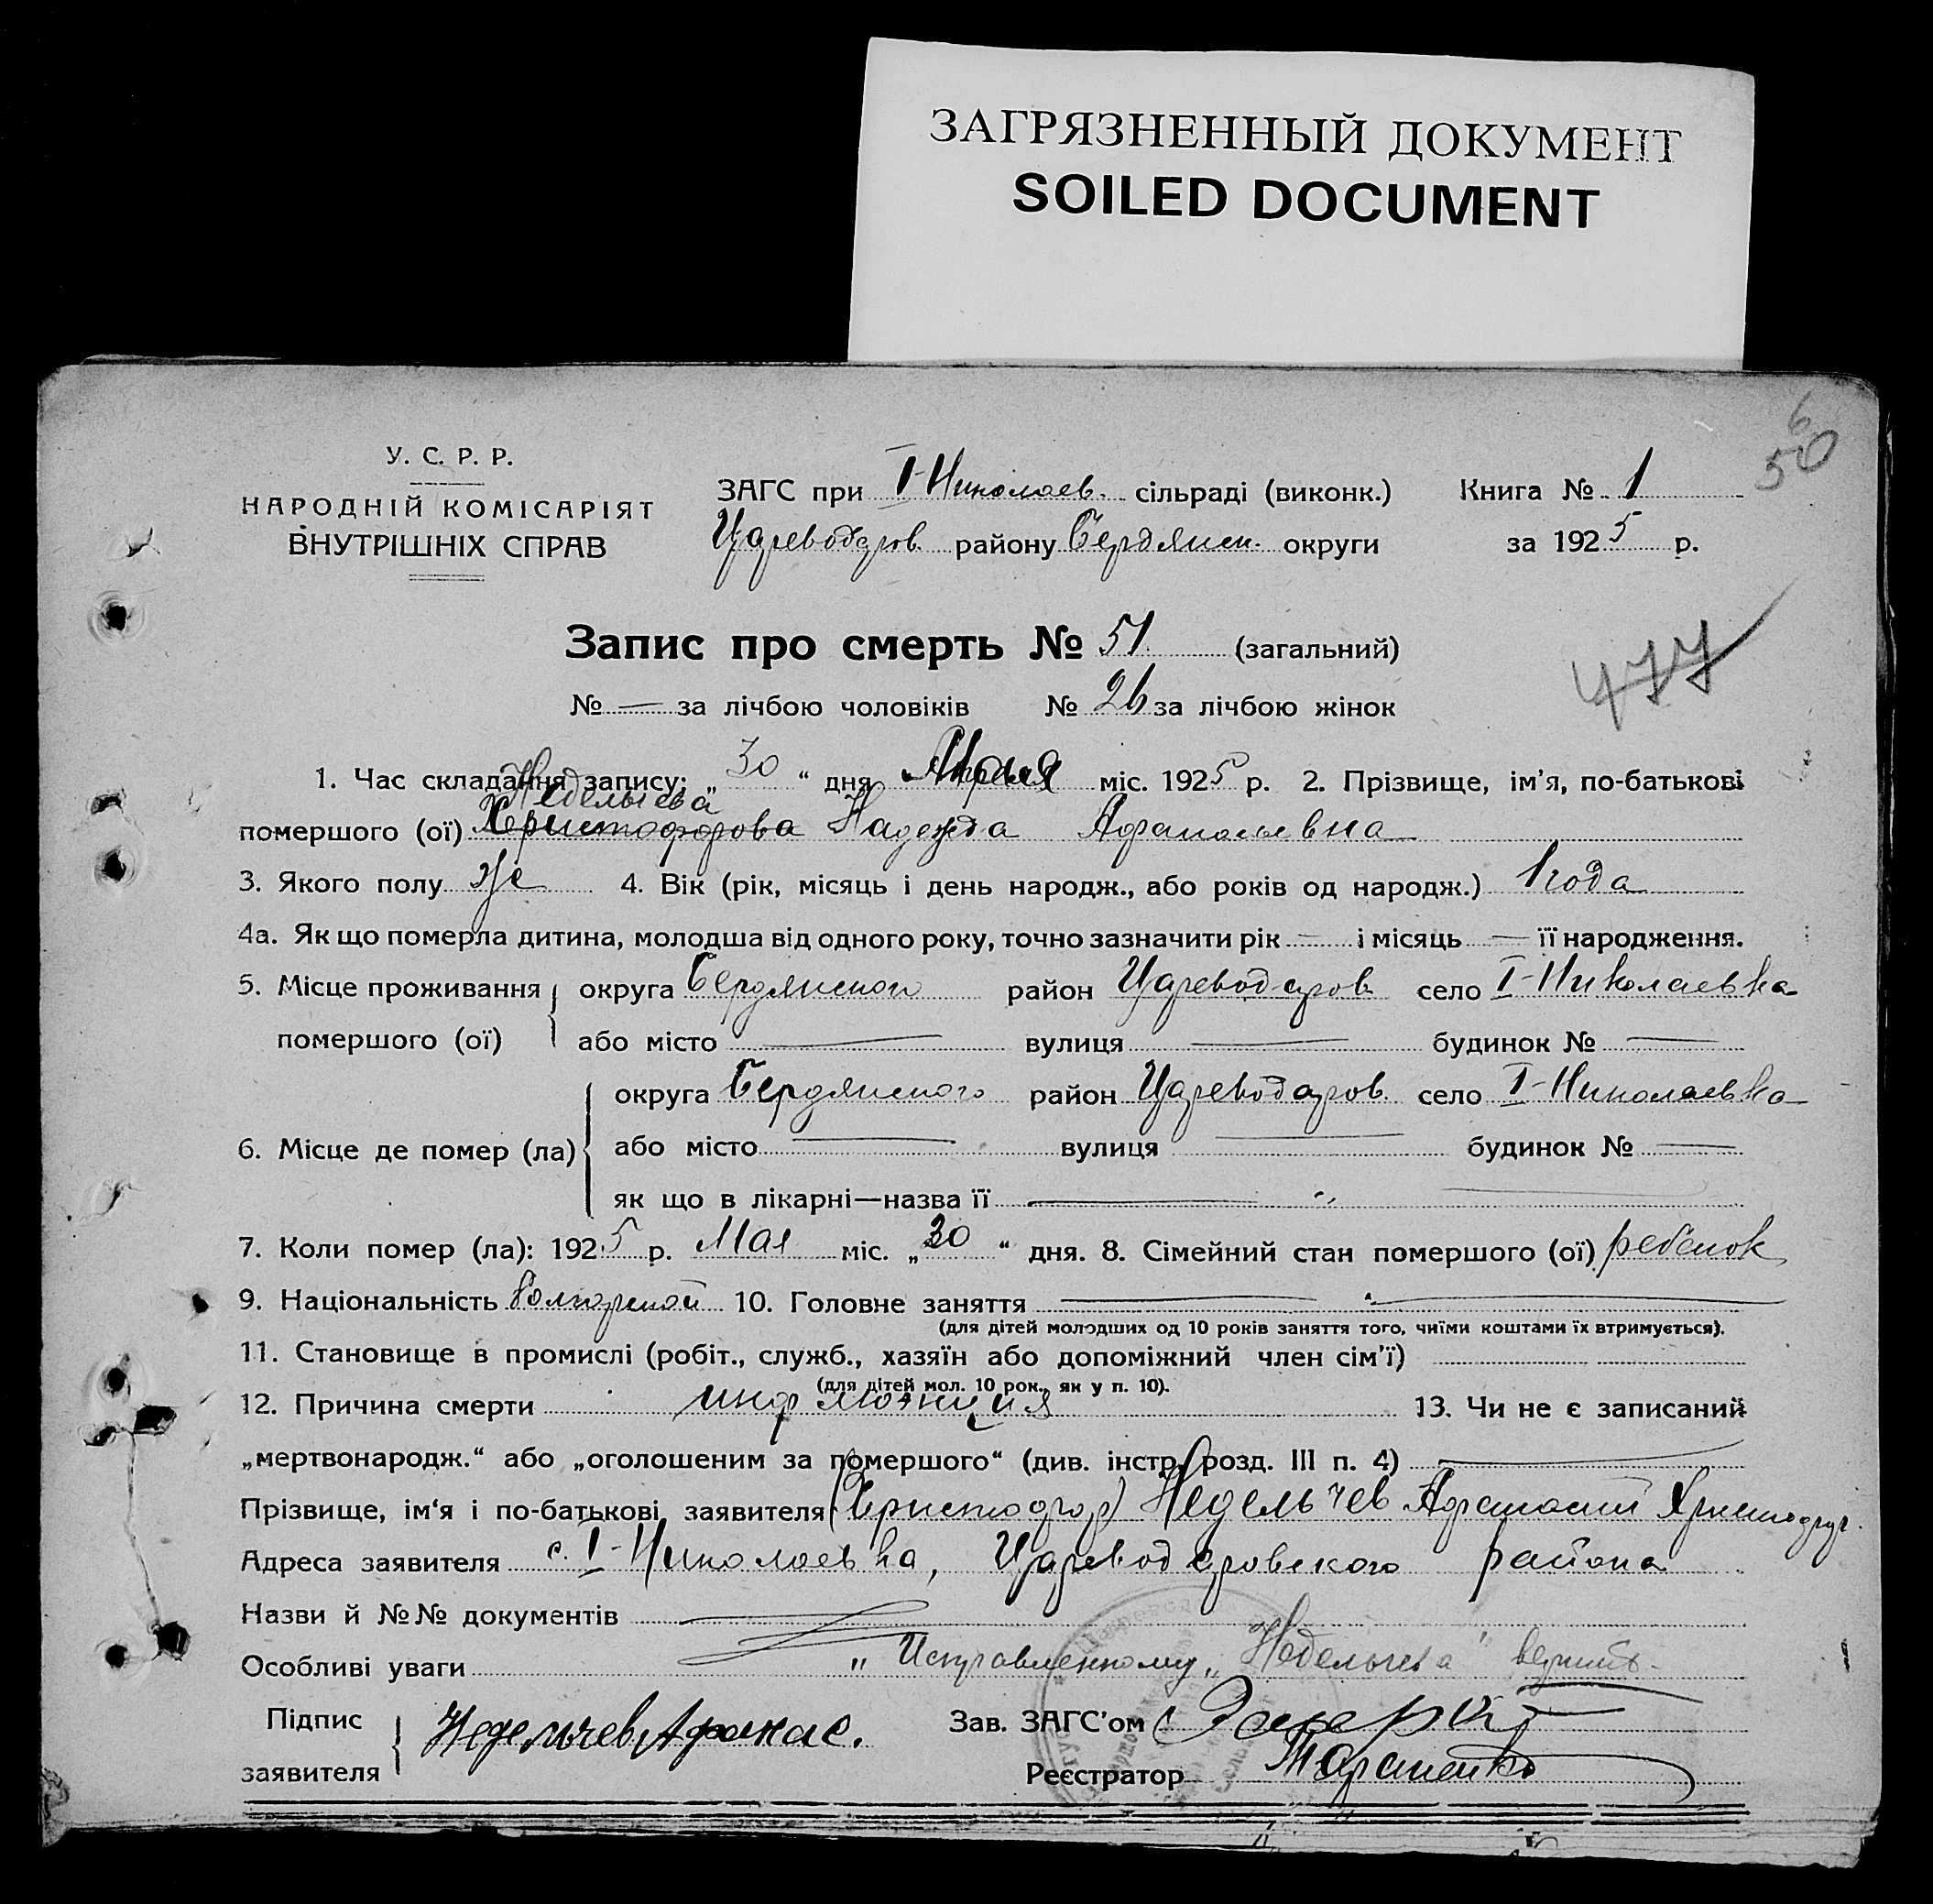 ЗАГРЯЗНЕННЫЙ ДОКУМЕНТ
SOILED DOCUMENT
6
50
У. С. Р. Р.
НАРОДНІЙ КОМІСАРІЯТ
ВНУТРІШНІХ СПРАВ
ЗАГС при I-Николаев. сільраді (виконк.) Книга № 1
Цареводаров. району Бердянск. округи за 1925 р.
Запис про смерть № 51. (загальний)
477
№ — за лічбою чоловіків № 26 за лічбою жінок
1. Час складання запису: „30“ дня міс. 1925 р. 2. Прізвище, ім'я, по-батькові
Недельчева
помершого (ої) Христофорова Надежда Афанасьевна
3. Якого полу же 4. Вік (рік, місяць і день народж., або років од народж.) 1 года
4а. Як що померла дитина, молодша від одного року, точно зазначити рік — і місяць — її народження.
5. Місце проживання округа Бердянского район Цареводаров село I-Николаевка
помершого (ої) або місто — вулиця — будинок № —
округа Бердянского район Цареводаров. село I-Николаевка
6. Місце де помер (ла) або місто — вулиця — будинок № —
як що в лікарні—назва її — „
7. Коли помер (ла): 1925 р. Мая міс. „30“ дня. 8. Сімейний стан помершого (ої) ребенок
9. Національність болгарской 10. Головне заняття —
(для дітей молодших од 10 років заняття того, чиїми коштами їх втримується).
11. Становище в промислі (робіт., служб., хазяїн або допоміжний член сім'ї)
(для дітей мол. 10 рок., як у п. 10).
12. Причина смерти инфлюэнция 13. Чи не є записаний
„мертвонародж.“ або „оголошеним за помершого“ (див. інстр. розд. III п. 4) —
Прізвище, ім'я і по-батькові заявителя (Христофор) Недельчев Афанасий Христофор.
Адреса заявителя с. I-Николаевка, Цареводаровского района
Назви й №№ документів —
Особливі уваги „Исправленному „Недельчева“ верить.
Підпис Недельчев Афанас. Зав. ЗАГС'ом
заявителя Реєстратор Тараненко